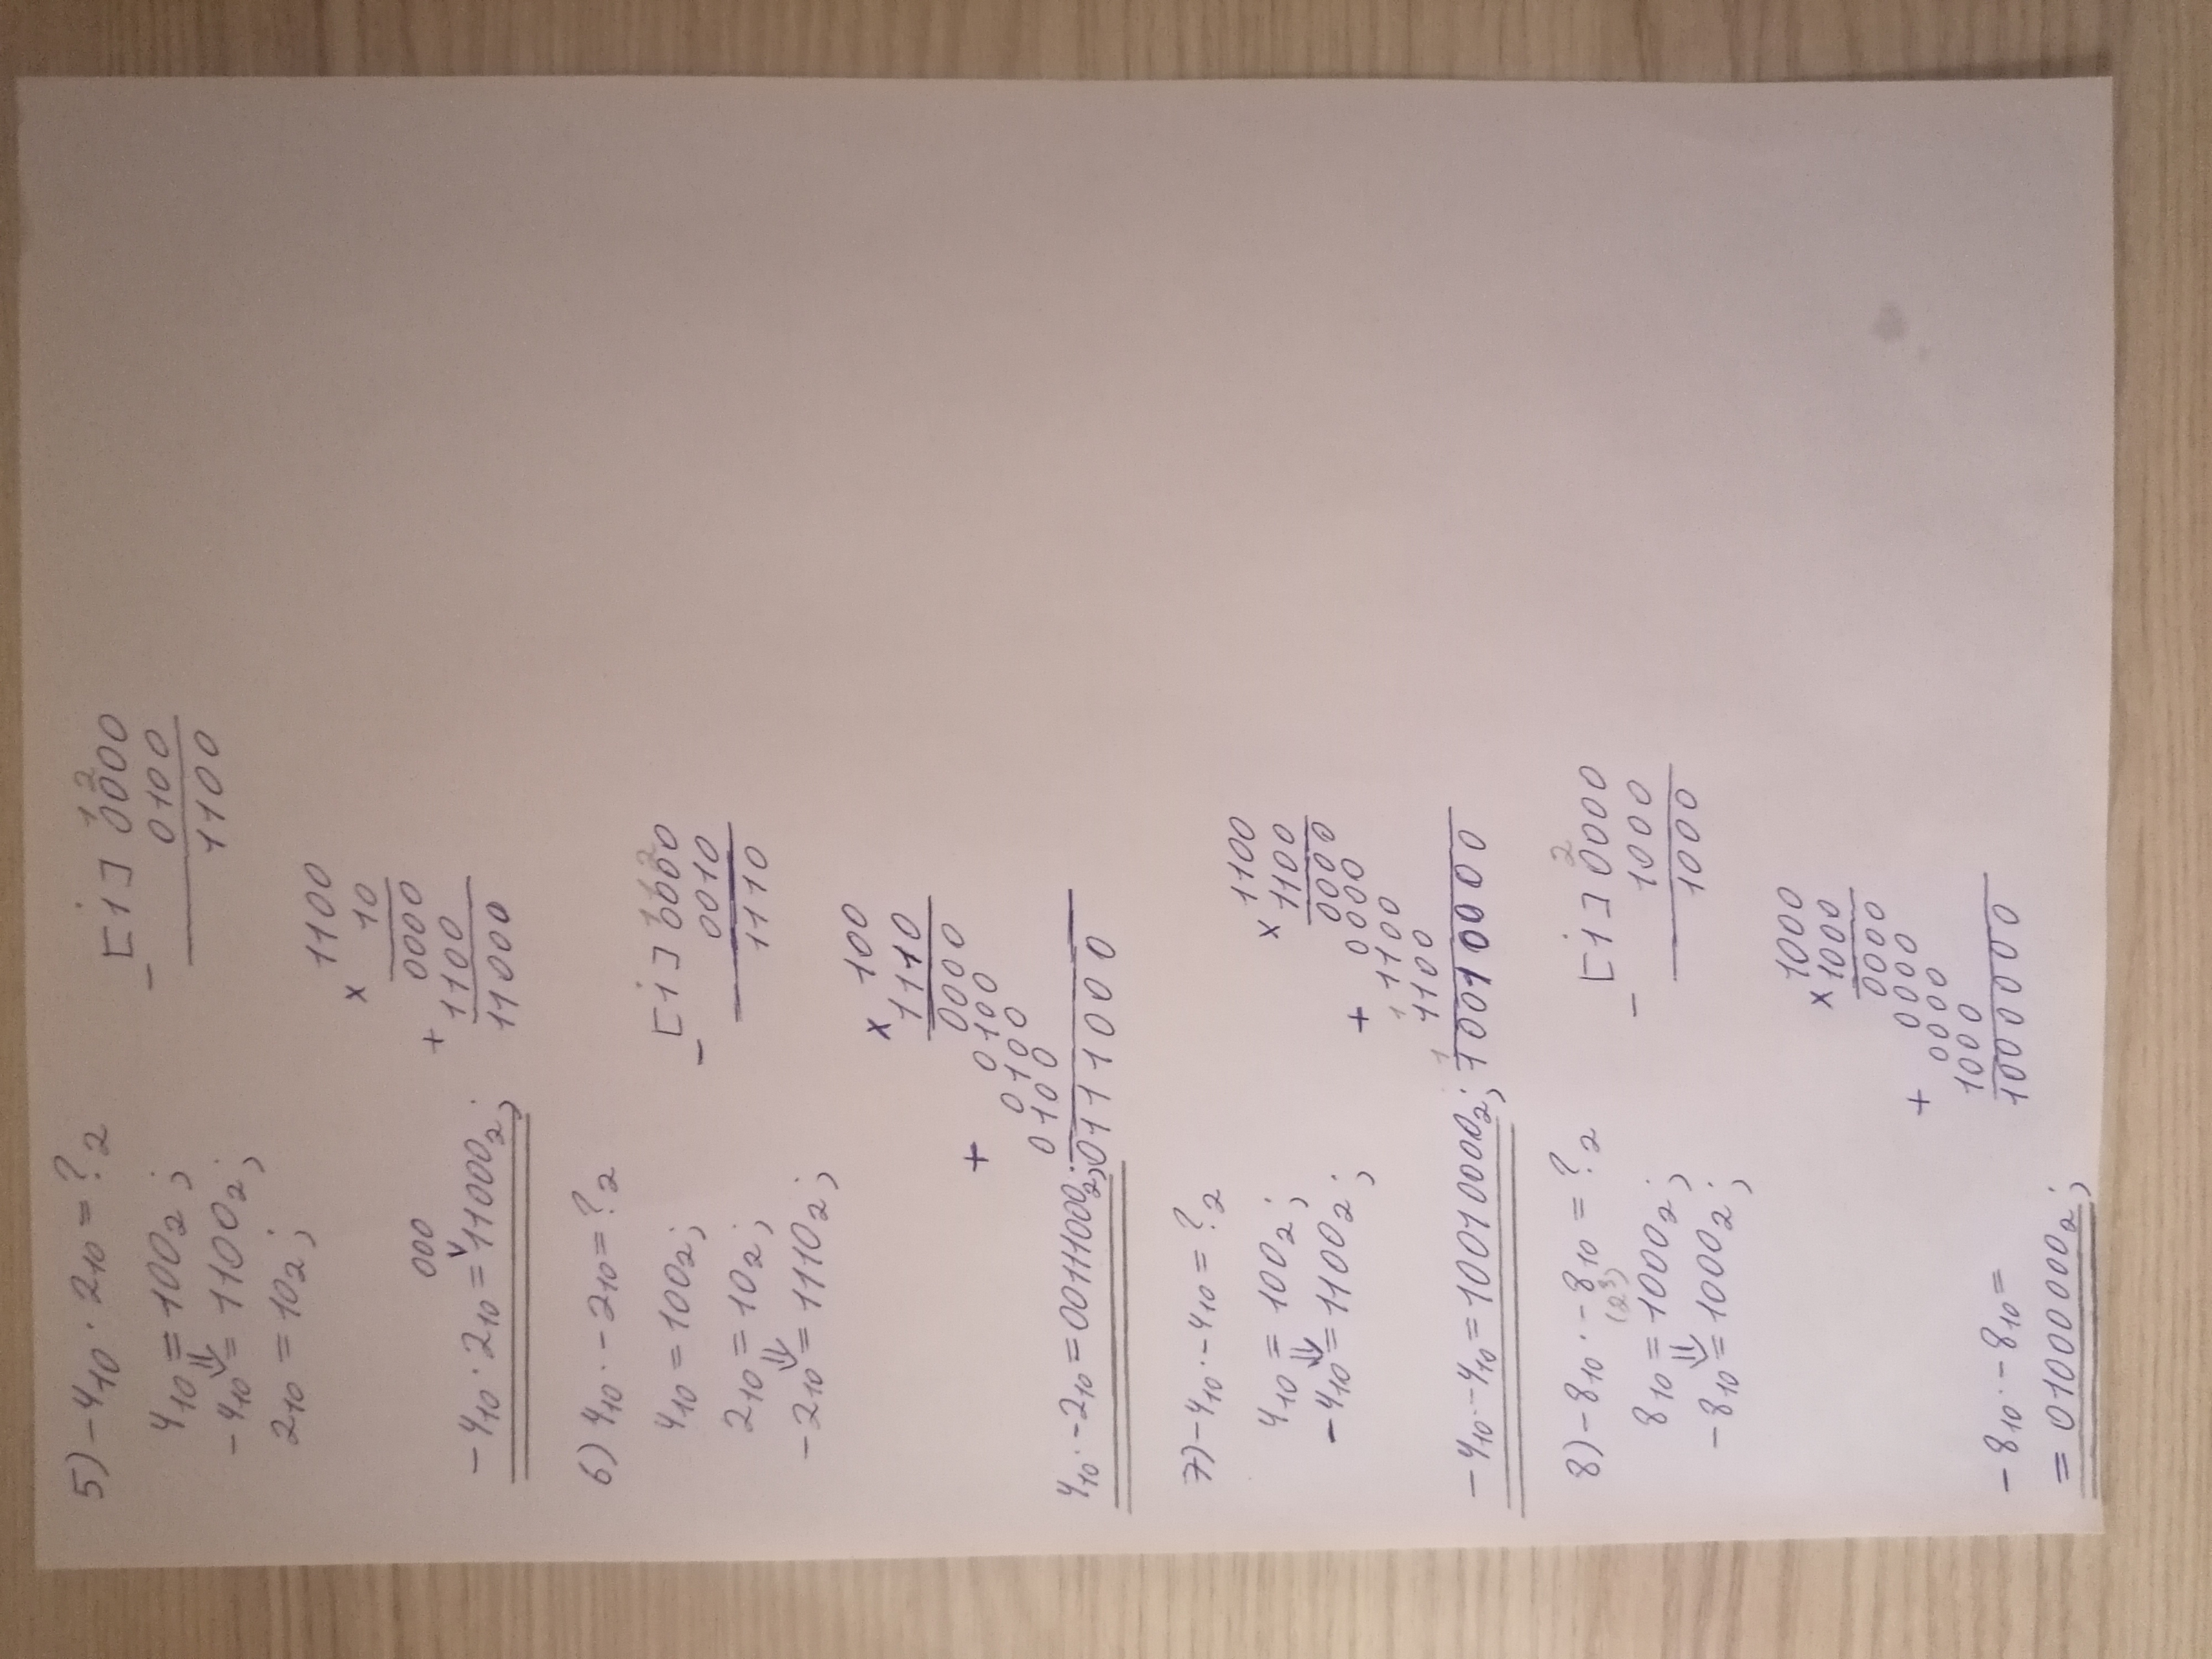 5) -4₁₀ · 2₁₀ = ?₂
4₁₀ = 100₂;
⇓
-4₁₀ = 1100₂;
2₁₀ = 10₂;
1 2
[1] 0000
- 0100
1100
1100
x 10
0000
+
1100
11000
000
v
-4₁₀ · 2₁₀ = 11000₂;
6) 4₁₀ · -2₁₀ = ?₂
4₁₀ = 100₂;
2₁₀ = 10₂;
⇓
-2₁₀ = 1110₂;
1 1 2
[1] 0000
- 0010
1110
x 100
1110
0000
+ 0100
0100
0100
0111000
4₁₀ · -2₁₀ = 00111000₂;
7) -4₁₀ · -4₁₀ = ?₂
4₁₀ = 100₂;
⇓
-4₁₀ = 1100₂;
1100
x 1100
0000
+ 0000
1 1100
1100
1
10010000
-4₁₀ · -4₁₀ = 10010000₂;
8) -8₁₀ · -8₁₀ = ?₂
(2³)
8₁₀ = 1000₂;
⇓
-8₁₀ = 1000₂;
2
[1] 0000
- 1000
1000
1000
x 1000
0000
0000
+ 0000
1000
1000000
-8₁₀ · -8₁₀ =
= 01000000₂;